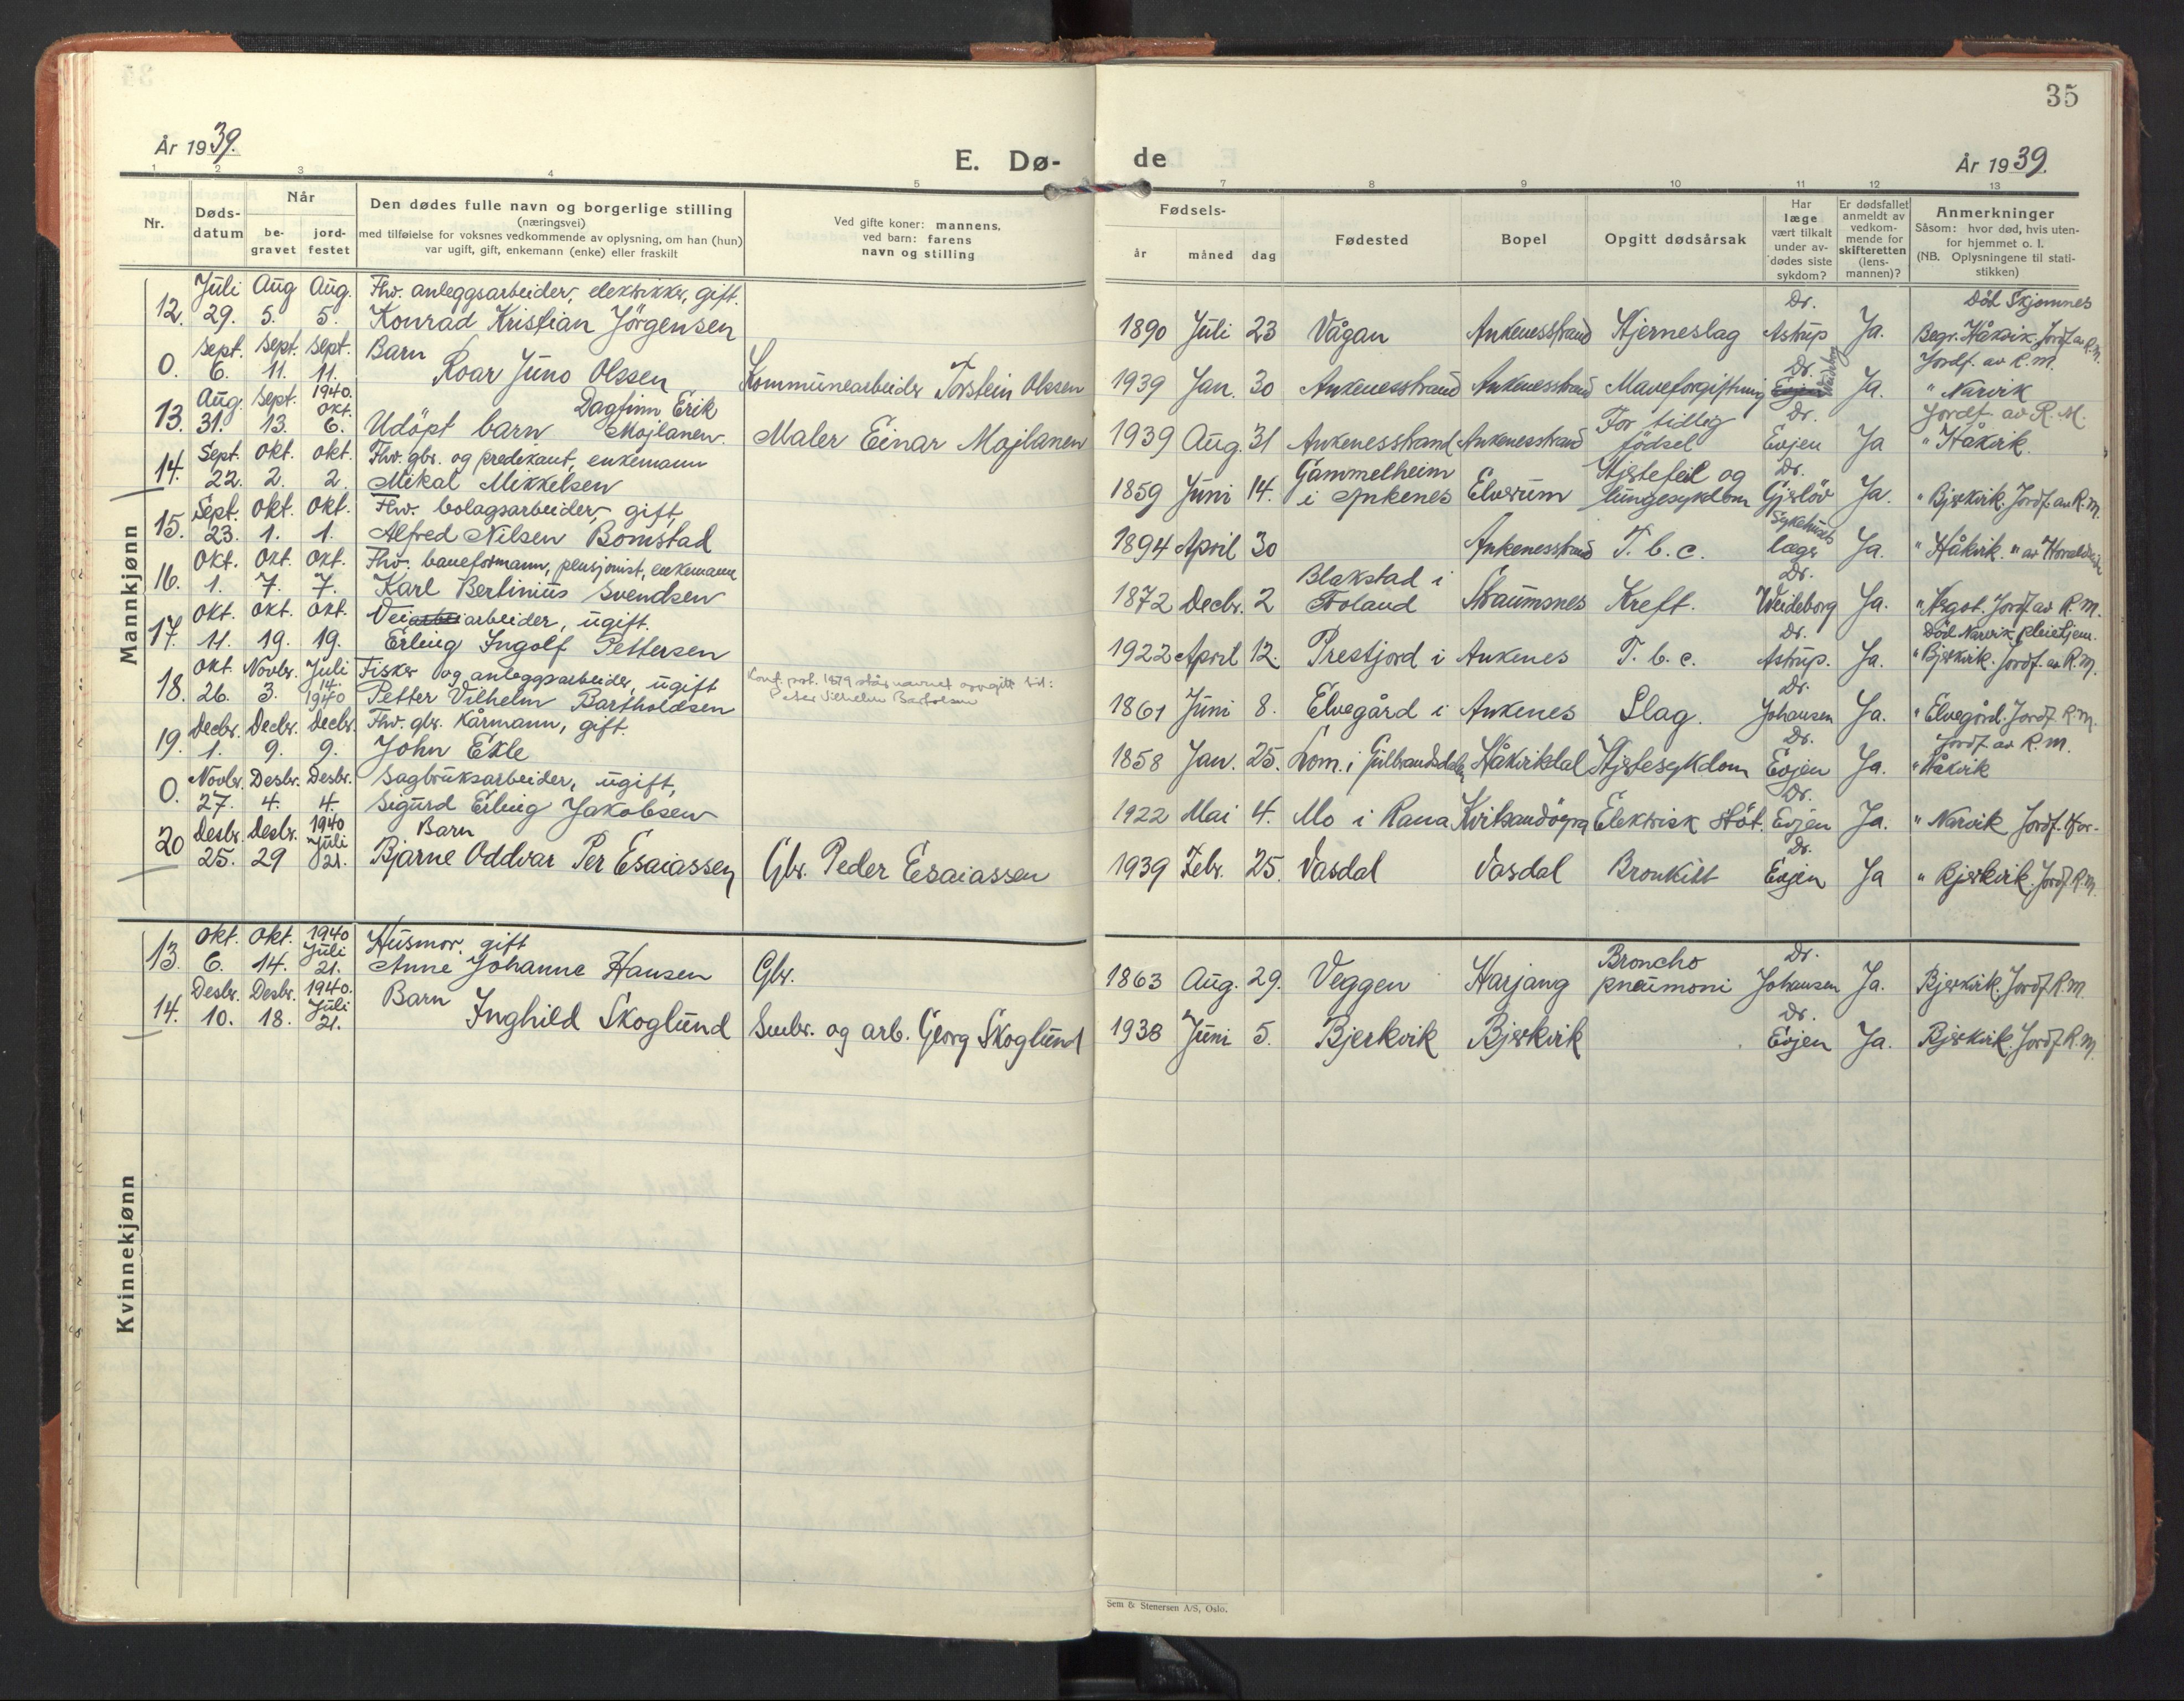 35
År 1939.
E. Dø-
de
År 1939.
1 2 3 4 5 7 8 9 10 11 12 13
Nr.
Døds-
datum
Når
be-
gravet
jord-
festet
Den dødes fulle navn og borgerlige stilling
(næringsvei)
med tilføielse for voksnes vedkommende av oplysning, om han (hun)
var ugift, gift, enkemann (enke) eller fraskilt
Ved gifte koner: mannens,
ved barn: farens
navn og stilling
Fødsels-
år måned dag
Fødested
Bopel
Opgitt dødsårsak
Har
læge
vært tilkalt
under av-
dødes siste
sykdom?
Er dødsfallet
anmeldt av
vedkom-
mende for
skifteretten
(lens-
mannen)?
Anmerkninger
Såsom: hvor død, hvis uten-
for hjemmet o. l.
(NB. Oplysningene til stati-
stikken)
Mannkjønn
Juli Aug Aug. Fhv. anleggsarbeider, elektrikker, gift. Dr. Död Skjomnes
12. 29. 5. 5. Konrad Kristian Jörgensen 1890 Juli 23 Vågan Ankenesstrand Hjerneslag Astrup Ja. Begr. Håkvik. Jordf. av R.M.
Sept. Sept. Sept. Barn Dr. Jordf. av R.M.
0. 6. 11. 11. Roar Juno Olssen Kommunearbeider Torstein Olssen 1939 Jan. 30 Ankenesstrand Ankenesstrand Maveforgiftning Evjen Weideborg Ja. " Narvik
Aug. Sept. 1940. Okt. Dagfinn Erik For tidlig Dr. Jordf. av R.M.
13. 31. 13. 6. Udöpt barn Mojlanen. Maler Einar Mojlanen 1939 Aug. 31 Ankenesstrand Ankenesstrand födsel Evjen Ja " Håkvik.
Sept. Okt. Okt. Fhv. gbr. og predikant, enkemann Gammelheim Hjertefeil og Dr.
14. 22. 2. 2. Mikal Mikkelsen 1859 Juni 14. i Ankenes Elverum lungesykdom Gjslöv Ja. " Bjerkvik. Jordf. av R.M.
Sept. Okt. Okt. Fhv. bolagsarbeider, gift, Sykehus
15. 23. 1. 1. Alfred Nilsen Bomstad 1894 April 30 Ankenesstrand T.b.c. læge Ja. " Håkvik. " av
Okt. Okt. Okt. Fhv. baneformann, pensjonist, enkemann Blakstad i Dr.
16. 1. 7. 7. Karl Bertinius Svendsen 1872 Decbr. 2 Froland Straumsnes Kreft. Weideborg Ja. " Jordf. av R.M.
Okt. Okt. Okt. Veiarbeiarbeider, ugift. Dr. Död Narvik pleiehjem.
17. 11. 19. 19. Erling Ingolf Pettersen 1922 April 12. Prestjord i Ankenes T.b.c. Astrup. Ja. " Bjerkvik. Jordf. av R.M.
Okt. Novbr. Juli 14. Fisker og anleggsarbeider, ugift Konf. prot. 1879 står navnet oppgitt til: Dr.
18. 26. 3. 1940 Petter Vilhelm Bartholdsen Peder Vilhelm Bartolsen 1861 Juni 8. Elvegård i Ankenes Slag. Johansen Ja. " Elvegård. Jordf. R.M.
Decbr. Decbr. Decbr. Fhv. gbr. Kårmann, gift. Dr. Jordf. av R.M.
19. 1. 9. 9. John Ekle 1858 Jan. 25. Lom i Gulbrandsdalen Håkvikdal Hjertesykdom Evjen Ja. " Håkvik
Novbr. Desbr. Desbr. Sagbruksarbeider, ugift, Dr.
0. 27. 4. 4. Sigurd Erling Jakobsen 1922 Mai 4. Mo i Rana Kvitsandöyra Elektrisk stöt. Evjen Ja. " Narvik Jordf. Hor-
Desbr. Desbr. 1940 Juli Barn Dr.
20 25. 29 21. Bjarne Oddvar Per Esaiassen Gbr. Peder Esaiassen 1939 Febr. 25. Vasdal Vasdal Bronkitt Evjen Ja " Bjerkvik. Jordf. R.M.
Kvinnekjønn
Okt. Okt. 1940 Juli Husmor, gift Broncho Dr.
13. 6. 14. 21. Anne Johanne Hansen Gbr. 1863 Aug. 29. Veggen Harjang pneumoni Johansen Ja. Bjerkvik. Jordf. R.M.
Desbr. Desbr. 1940. Juli Barn Dr.
14. 10. 18. 21. Inghild Skoglund Smbr. og arb. Georg Skoglund 1938 Juni 5. Bjerkvik Bjerkvik Evjen Ja. Bjerkvik. Jordf. R.M.
Sem & Stenersen A/S, Oslo.